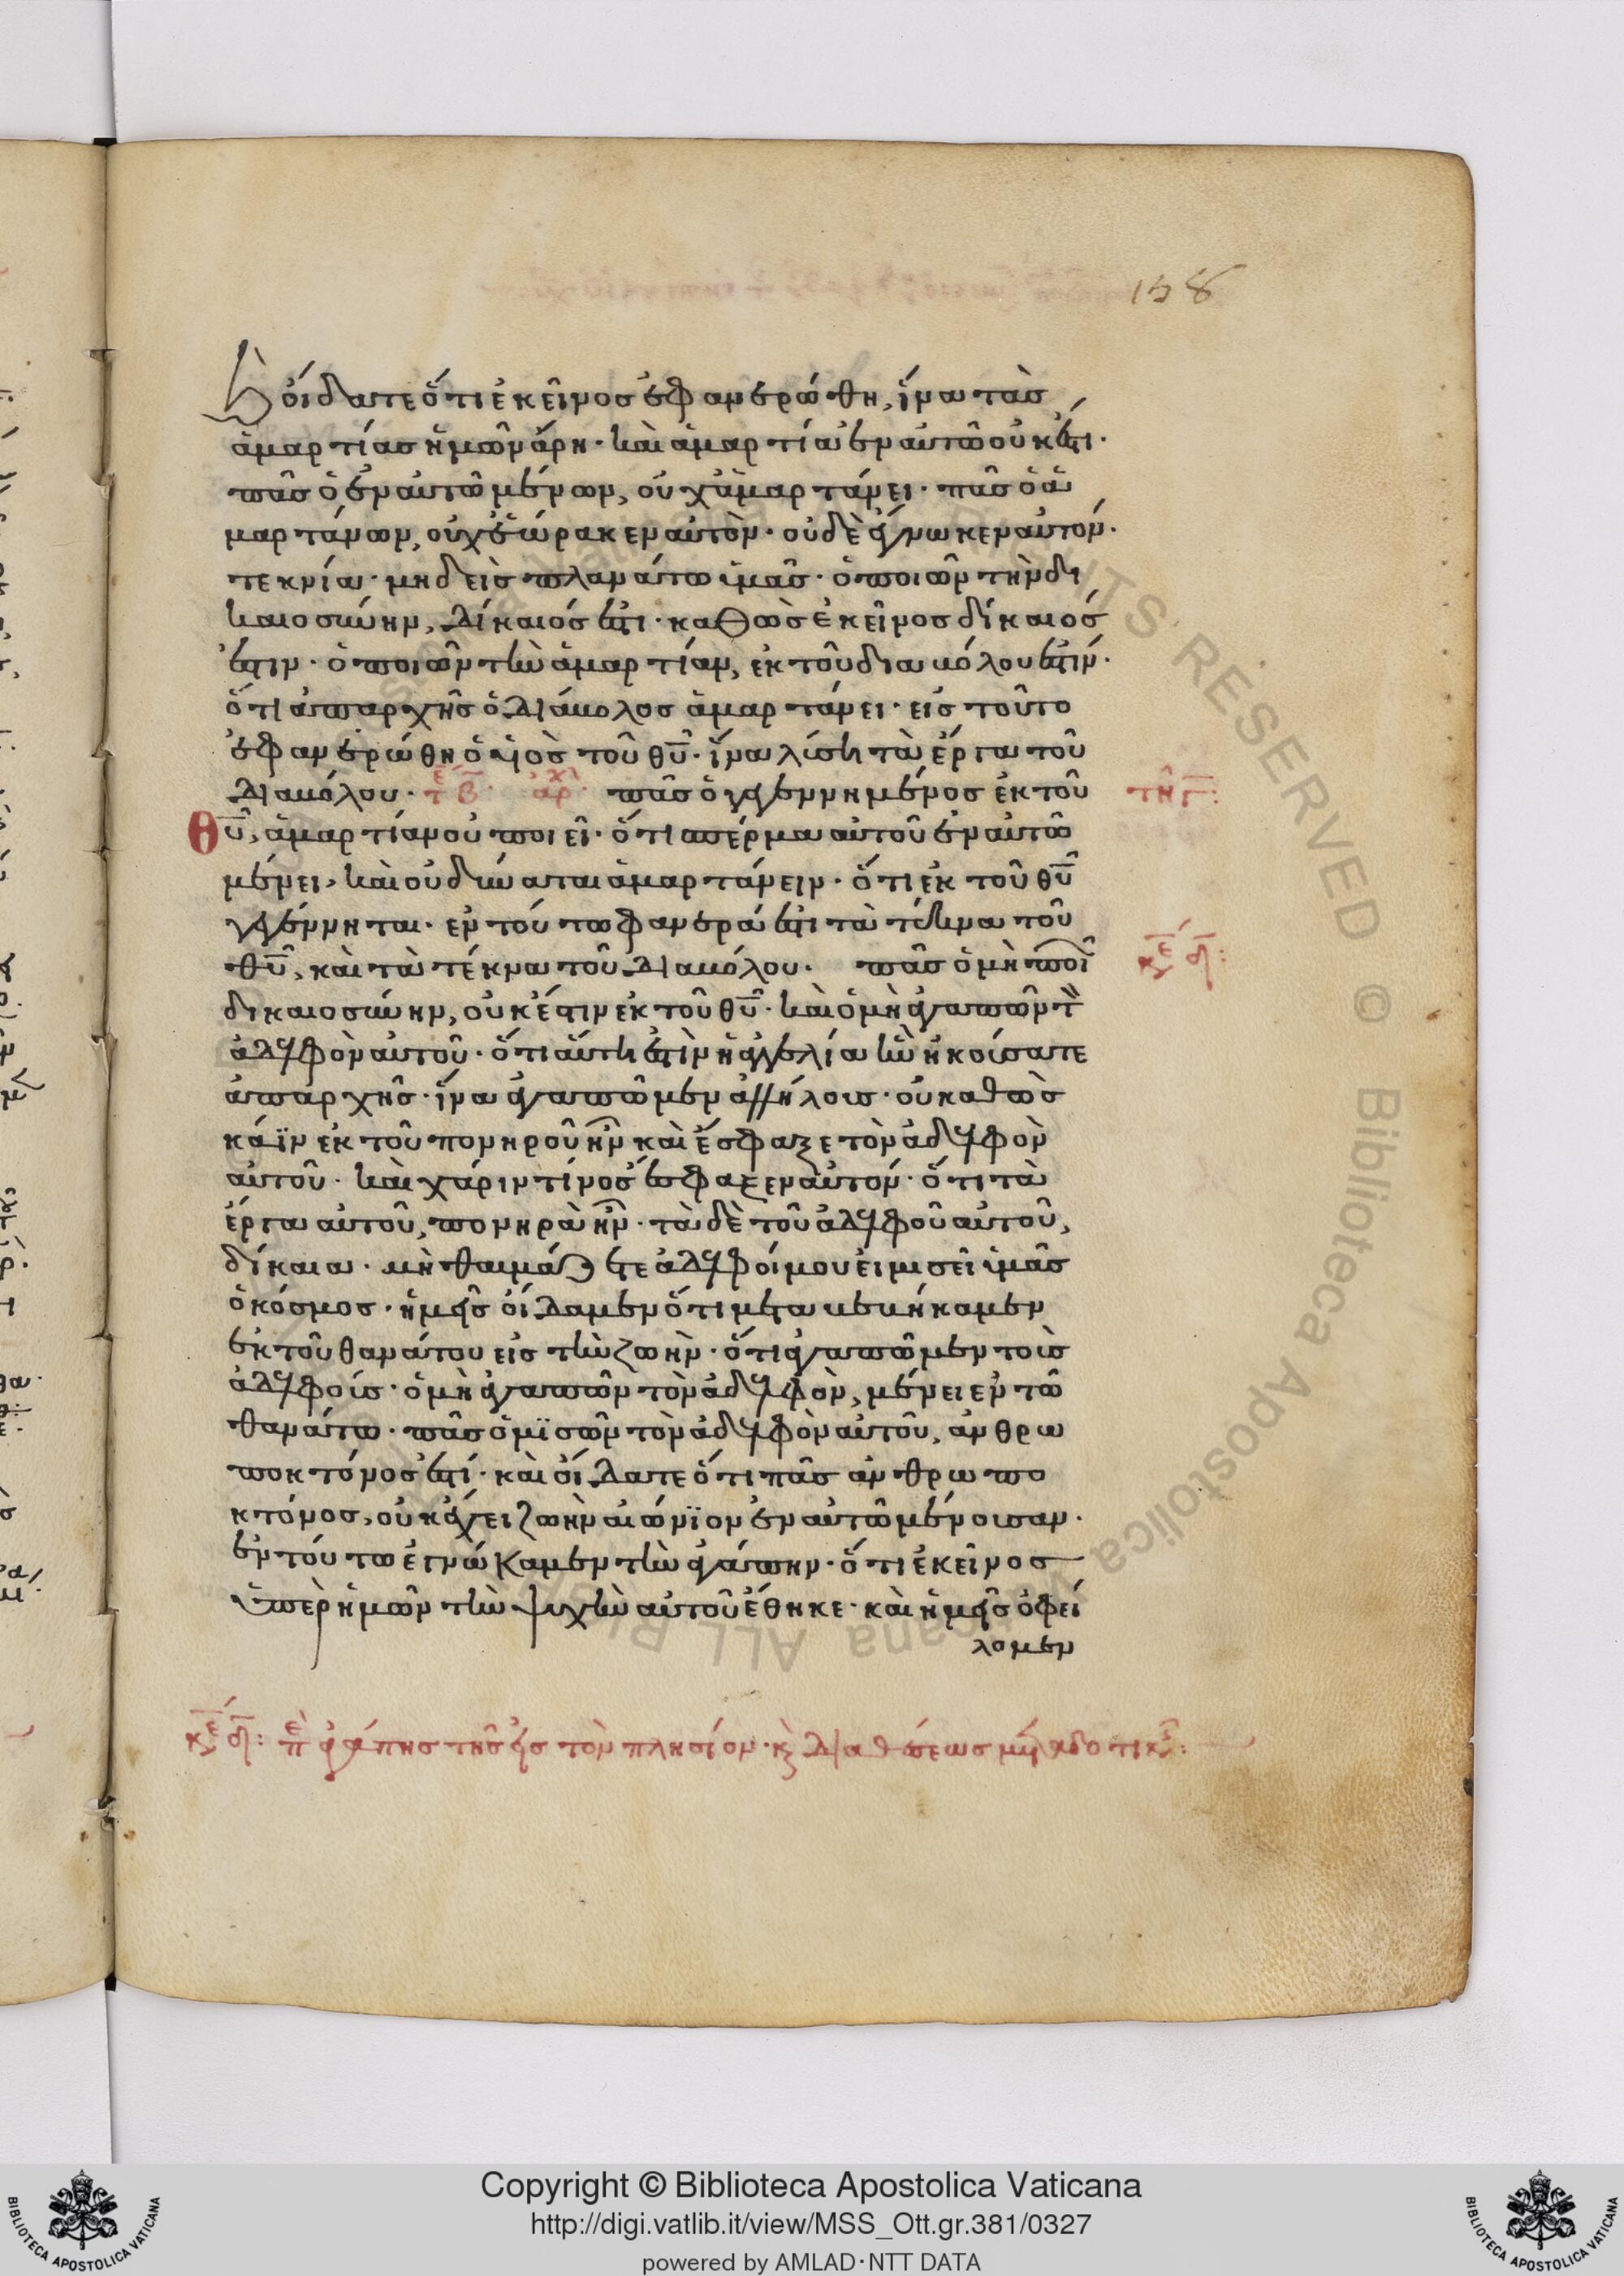 158
κ(αὶ) οἴδατε ὅτι ἐκεῖνος ἐφανερώθη, ἵνα τὰς
ἁμαρτίας ἡμῶν ἄρη· καὶ ἁμαρτία ἐν αὐτῶ οὐκ ἔστι·
πᾶς ὁ ἐν αὐτῶ μένων, οὐχ ἁμαρτάνει· πᾶς ὁ ἁ
μαρτάνων, οὐχ ἑώρακεν αὐτὸν· οὐδὲ ἔγνωκεν αὐτόν·
τεκνία· μηδεὶς πλανάτω ὑμᾶς· ὁ ποιῶν τὴν δι
καιοσύνην, δίκαιός ἐστι· καθὼς ἐκεῖνος δίκαιός
ἐστιν· ὁ ποιῶν τὴν ἁμαρτίαν, ἐκ τοῦ διαβόλου ἐστίν·
ὅτι ἀπαρχῆς ὁ διάβολος ἁμαρτάνει· εἰς τοῦτο
ἐφανερώθη ὁ υἱὸς τοῦ θυ· ἵνα λύση τὰ ἔργα τοῦ
διαβόλου· τε β· ἀρχ· πᾶς ὁ γεγεννημένος ἐκ τοῦ
τῆ γ:
θυ, ἁμαρτίαν οὐ ποιεῖ· ὅτι σπέρμα αὐτοῦ ἐν αὐτῶ
μένει, καὶ οὐ δύναται ἁμαρτάνειν· ὅτι ἐκ τοῦ θυ
γεγέννηται· ἐν τούτω φανερά ἐστι τὰ τέκνα τοῦ
θυ, καὶ τὰ τέκνα τοῦ διαβόλου· πᾶς ὁ μὴ ποι
δικαιοσύνην, οὐκ ἔστιν ἐκ τοῦ θυ· καὶ ὁ μὴ ἀγαπῶν τ
ἀδελφὸν αὐτοῦ· ὅτι αὕτη ἐστὶν ἡ ἀγγελία ἣν ἠκούσατε
ἀπαρχῆς· ἵνα ἀγαπῶμεν ἀλλήλους· οὐ καθὼς
κάϊν ἐκ τοῦ πονηροῦ ἦν καὶ ἔσφαξε τὸν ἀδελφὸν
αὐτοῦ· καὶ χάριν τίνος ἔσφαξεν αὐτόν· ὅτι τὰ
ἔργα αὐτοῦ, πονηρὰ ἦν· τὰ δὲ τοῦ ἀδελφοῦ αὐτοῦ,
δίκαια· μὴ θαυμάζετε ἀδελφοί μου εἰ μισεῖ ὑμᾶς
ὁ κόσμος· ἡμεῖς οἴδαμεν ὅτι μεταβεβήκαμεν
ἐκ τοῦ θανάτου εἰς τὴν ζωὴν· ὅτι ἀγαπῶμεν τοὺς
ἀδελφούς· ὁ μὴ ἀγαπῶν τὸν ἀδελφὸν, μένει ἐν τῶ
θανάτω· πᾶς ὁ μϊσῶν τὸν ἀδελφὸν αὐτοῦ, ἀνθρω
ποκτόνος ἐστί· καὶ οἴδατε ὅτι πᾶς ἀνθρωπο
κτόνος, οὐκ ἔχει ζωὴν αἰώνϊον ἐν αὐτῶ μένουσαν·
ἐν τούτω ἐγνώκαμεν τὴν ἀγάπην· ὅτι ἐκεῖνος
ὑπὲρ ἡμῶν τὴν ψυχὴν αὐτοῦ ἔθηκε· καὶ ἡμεῖς ὀφεί
λομεν
κε δ: πε ἀγάπης τῆς εἰς τὸν πλησίον· κ(αὶ) διαθέσεως μεταδοτικ: